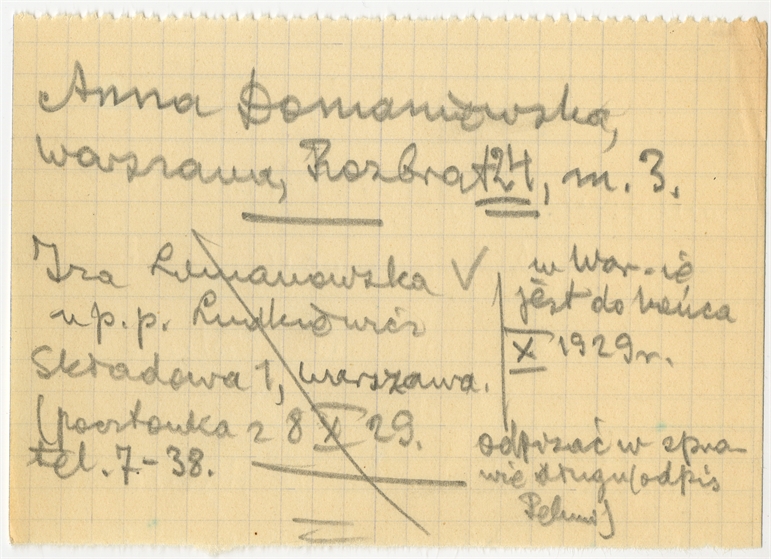 Anna Domaniewska,
Warszawa, Rozbrat 24, m. 3.
Iza Lemanowska V
u p.p. Ludkiewicz
Składowa 1, Warszawa.
(pocztówka z 8 X 29.
tel. 7-38.
w War-ie
jest do końca
X 1929 r.
odpisać w spra-
wie długu (odpis